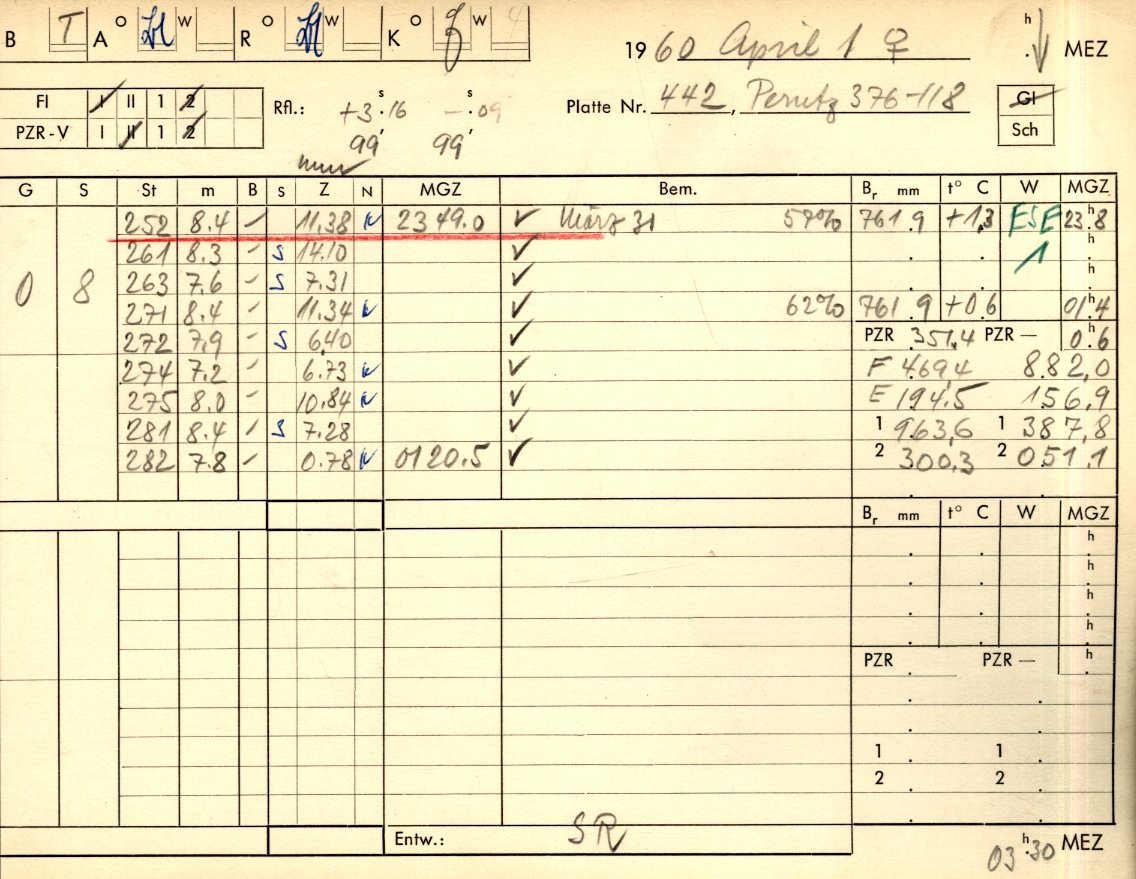 B T A O W R O W K O W 4
19 60 April 1 ♀ h . MEZ
FI I II 1 2
PZR-V I II 1 2
Rfl.: +3 s .16 — s .09
99' 99'
Platte Nr. 442, Perutz 376-118
GI
Sch
G S St m B S Z N MGZ Bem. Br mm t° C W MGZ
252 8.4 – 11.38 N 23 49.0 ✓ März 31 59% 761.9 +1.3 ESE 23.8
261 8.3 – S 14.10 ✓ 1 h
0 8 263 7.6 – S 7.31 ✓ h
271 8.4 – 11.34 N ✓ 62% 761.9 +0.6 01.4
272 7.9 – S 6.40 ✓ PZR 351.4 PZR – 0.6
274 7.2 – 6.73 N ✓ F 469.4 882,0
275 8.0 – 10.84 N ✓ E 194.5 156,9
281 8.4 – S 7.28 ✓ 1 963,6 1 387,8
282 7.8 – 0.78 N 01 20.5 ✓ 2 300,3 2 051,1
Br mm t° C W MGZ
h
h
h
h
PZR PZR – h
1 1
2 2
Entw.: SR
03 h .30 MEZ